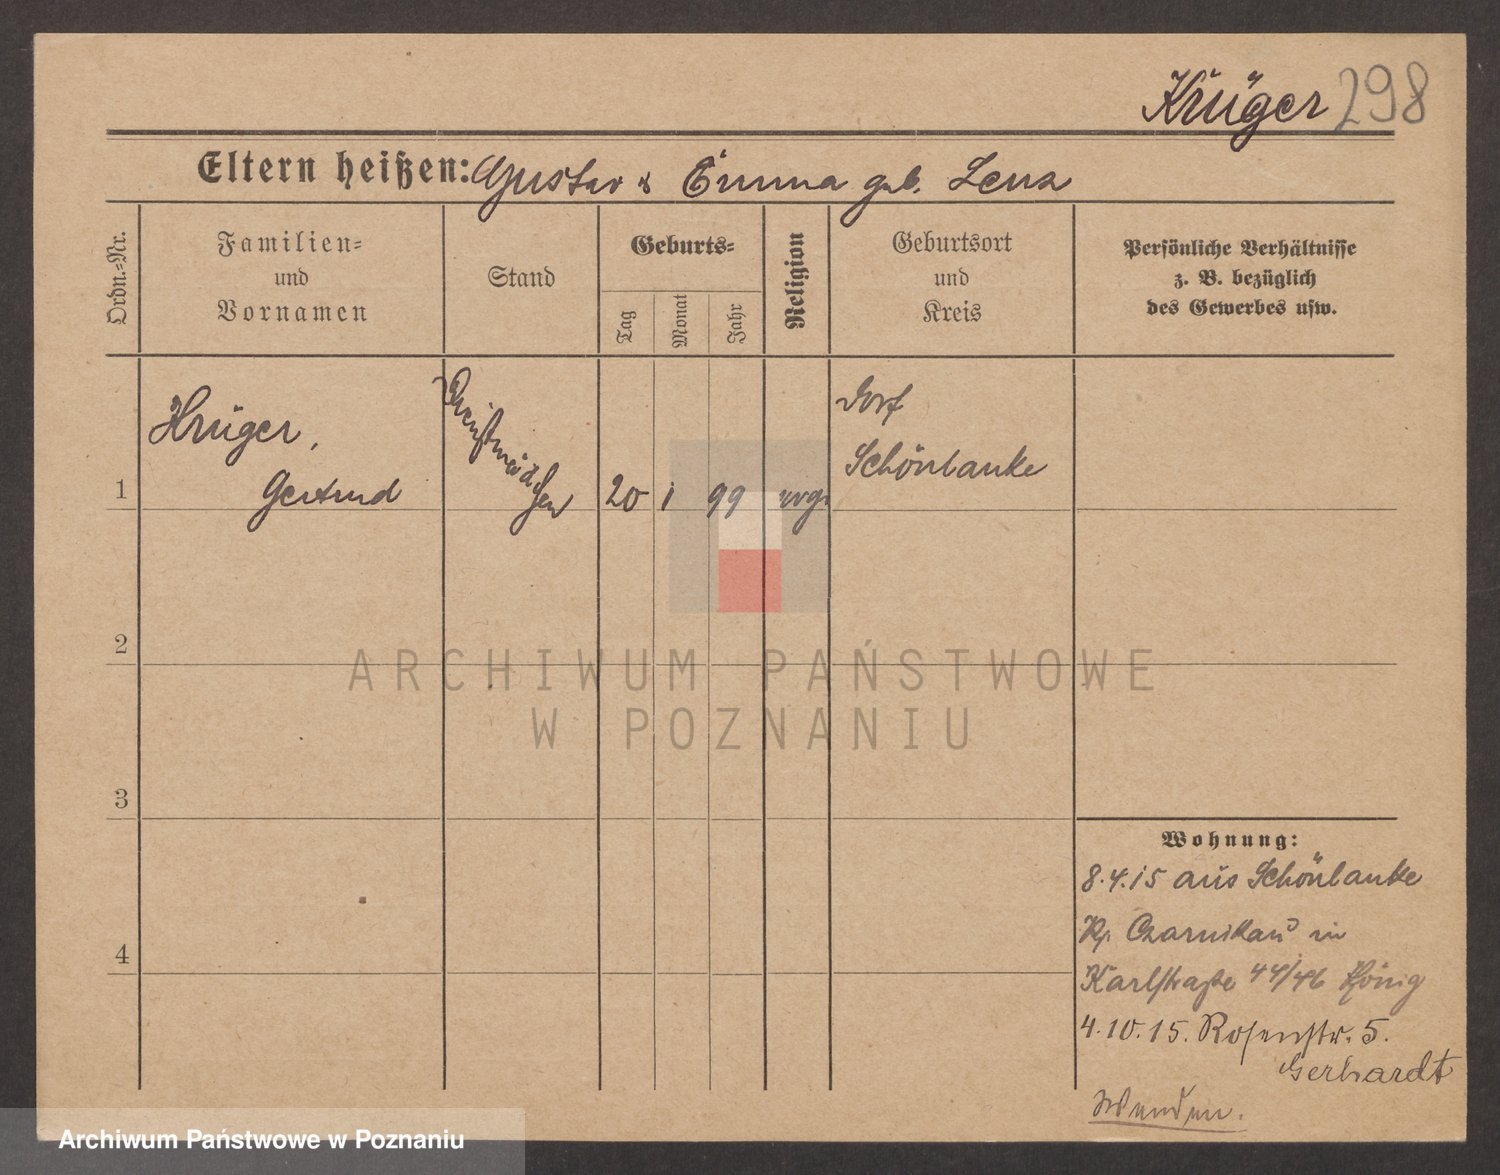 Krüger 298
Eltern heißen: Gustav & Emma geb. Lenz
Ordn.-Nr.
Familien- und Vornamen
Stand
Geburts-
Tag
Monat
Jahr
Religion
Geburtsort und Kreis
Persönliche Verhältnisse
z. B. bezüglich
des Gewerbes usw.
1
Krüger,
Gertrud
Dienstmädchen
20 1 99 evg.
Dorf
Schönlanke
2
3
4
Wohnung:
8.4.15 aus Schönlanke
Kr. Czarnikau in
Karlstraße 44/46 König
4.10.15. Rosenstr. 5.
Gerhardt
Wenden.
ARCHIWUM PAŃSTWOWE
W POZNANIU
Archiwum Państwowe w Poznaniu